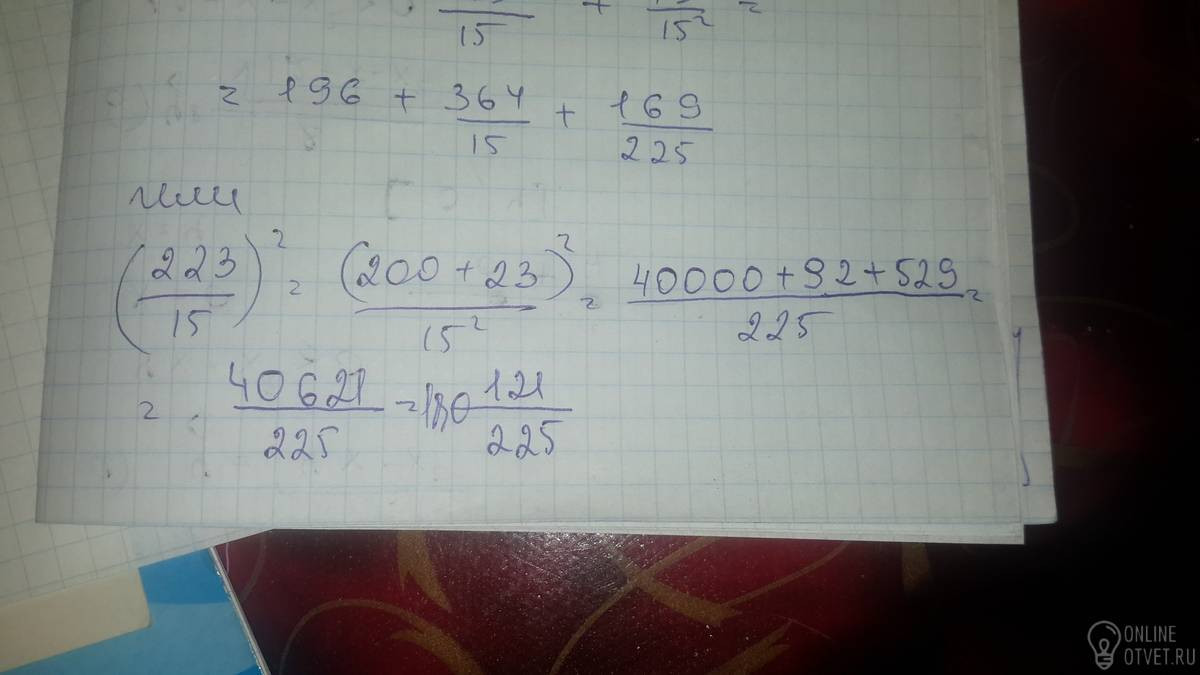 15 + 15² =
= 196 + 364/15 + 169/225
или
(223/15)² = (200 + 23)²/15² = 40000 + 92 + 529/225 =
= 40621/225 = 180 121/225
ONLINE
OTVET.RU